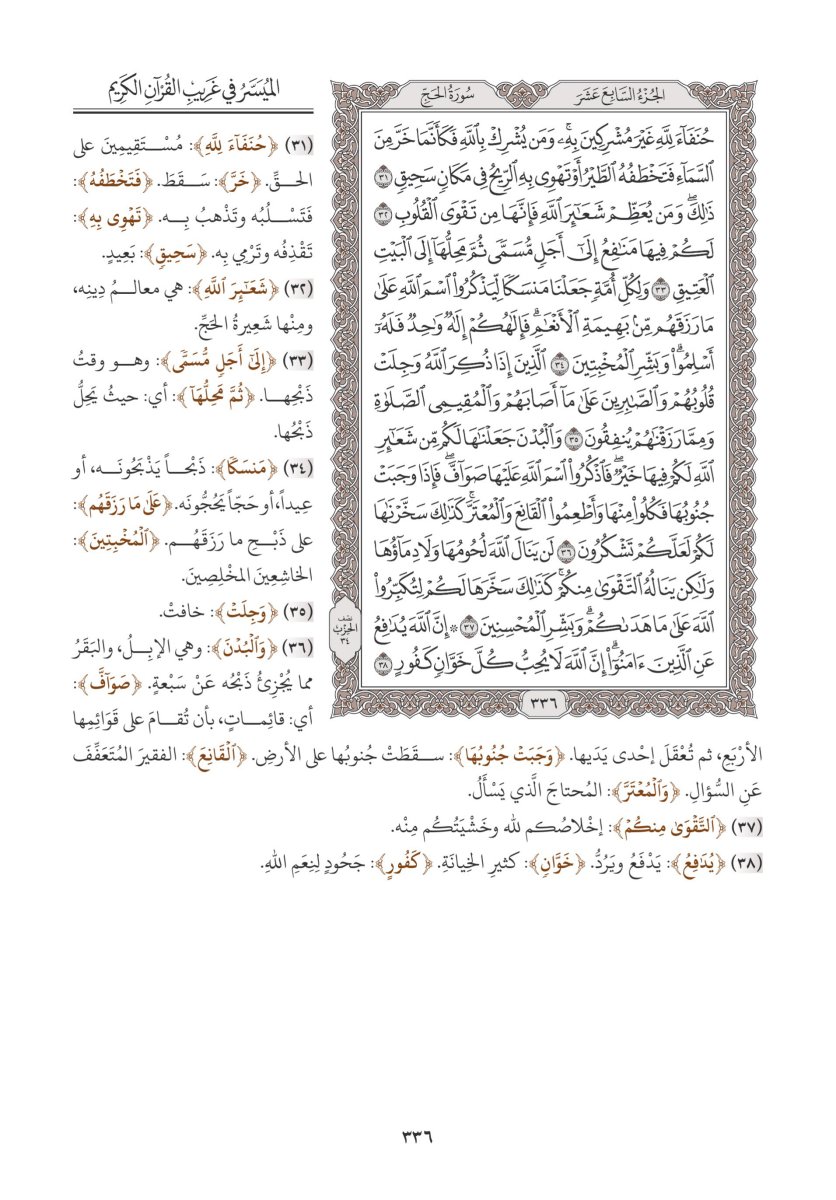 الجُزْءُ السَّابِعَ عَشَرَ
سُورَةُ الحَجِّ
حُنَفَآءَ لِلَّهِ غَيْرَ مُشْرِكِينَ بِهِۦۚ وَمَن يُشْرِكْ بِٱللَّهِ فَكَأَنَّمَا خَرَّ مِنَ
ٱلسَّمَآءِ فَتَخْطَفُهُ ٱلطَّيْرُ أَوْ تَهْوِي بِهِ ٱلرِّيحُ فِي مَكَانٖ سَحِيقٖ ٣١
ذَٰلِكَۖ وَمَن يُعَظِّمْ شَعَٰٓئِرَ ٱللَّهِ فَإِنَّهَا مِن تَقْوَى ٱلْقُلُوبِ ٣٢
لَكُمْ فِيهَا مَنَٰفِعُ إِلَىٰٓ أَجَلٖ مُّسَمّٗى ثُمَّ مَحِلُّهَآ إِلَى ٱلْبَيْتِ
ٱلْعَتِيقِ ٣٣ وَلِكُلِّ أُمَّةٖ جَعَلْنَا مَنسَكٗا لِّيَذْكُرُواْ ٱسْمَ ٱللَّهِ عَلَىٰ
مَا رَزَقَهُم مِّنۢ بَهِيمَةِ ٱلْأَنْعَٰمِۗ فَإِلَٰهُكُمْ إِلَٰهٞ وَٰحِدٞ فَلَهُۥٓ
أَسْلِمُواْۗ وَبَشِّرِ ٱلْمُخْبِتِينَ ٣٤ ٱلَّذِينَ إِذَا ذُكِرَ ٱللَّهُ وَجِلَتْ
قُلُوبُهُمْ وَٱلصَّٰبِرِينَ عَلَىٰ مَآ أَصَابَهُمْ وَٱلْمُقِيمِي ٱلصَّلَوٰةِ
وَمِمَّا رَزَقْنَٰهُمْ يُنفِقُونَ ٣٥ وَٱلْبُدْنَ جَعَلْنَٰهَا لَكُم مِّن شَعَٰٓئِرِ
ٱللَّهِ لَكُمْ فِيهَا خَيْرٞۖ فَٱذْكُرُواْ ٱسْمَ ٱللَّهِ عَلَيْهَا صَوَآفَّۖ فَإِذَا وَجَبَتْ
جُنُوبُهَا فَكُلُواْ مِنْهَا وَأَطْعِمُواْ ٱلْقَانِعَ وَٱلْمُعْتَرَّۚ كَذَٰلِكَ سَخَّرْنَٰهَا
لَكُمْ لَعَلَّكُمْ تَشْكُرُونَ ٣٦ لَن يَنَالَ ٱللَّهَ لُحُومُهَا وَلَا دِمَآؤُهَا
وَلَٰكِن يَنَالُهُ ٱلتَّقْوَىٰ مِنكُمْۚ كَذَٰلِكَ سَخَّرَهَا لَكُمْ لِتُكَبِّرُواْ
ٱللَّهَ عَلَىٰ مَا هَدَىٰكُمْۗ وَبَشِّرِ ٱلْمُحْسِنِينَ ٣٧ ۞ إِنَّ ٱللَّهَ يُدَٰفِعُ
عَنِ ٱلَّذِينَ ءَامَنُوٓاْۗ إِنَّ ٱللَّهَ لَا يُحِبُّ كُلَّ خَوَّانٖ كَفُورٍ ٣٨
نصف
الحزب
٣٤
٣٣٦
المُيَسَّرُ في غَرِيبِ القُرْآنِ الكَرِيمِ
(٣١) ﴿حُنَفَآءَ لِلَّهِ﴾: مُسْتَقِيمِينَ على
الحقِّ. ﴿خَرَّ﴾: سَقَطَ. ﴿فَتَخْطَفُهُ﴾:
فَتَسْلُبُه وتَذْهبُ بِه. ﴿تَهْوِي بِهِ﴾:
تَقْذِفُه وتَرْمِي بِه. ﴿سَحِيقٖ﴾: بَعِيدٍ.
(٣٢) ﴿شَعَٰٓئِرَ ٱللَّهِ﴾: هي معالمُ دِينِه،
ومِنْها شَعِيرةُ الحَجِّ.
(٣٣) ﴿إِلَىٰٓ أَجَلٖ مُّسَمّٗى﴾: وهو وقتُ
ذَبْحِها. ﴿ثُمَّ مَحِلُّهَآ﴾: أي: حيثُ يَحِلُّ
ذَبْحُها.
(٣٤) ﴿مَنسَكٗا﴾: ذَبْحاً يَذْبَحُونَه، أو
عِيداً، أو حَجّاً يَحُجُّونَه. ﴿عَلَىٰ مَا رَزَقَهُم﴾:
على ذَبْحِ ما رَزَقَهُم. ﴿ٱلْمُخْبِتِينَ﴾:
الخاشِعِينَ المخْلِصِينَ.
(٣٥) ﴿وَجِلَتْ﴾: خافتْ.
(٣٦) ﴿وَٱلْبُدْنَ﴾: وهي الإبِلُ، والبَقَرُ
مما يُجْزِئُ ذَبْحُه عَنْ سَبْعةٍ. ﴿صَوَآفَّ﴾:
أي: قائِماتٍ، بأن تُقامَ على قَوَائِمِها
الأرْبَعِ، ثم تُعْقَلَ إحْدى يَدَيها. ﴿وَجَبَتْ جُنُوبُهَا﴾: سقَطَتْ جُنوبُها على الأرضِ. ﴿ٱلْقَانِعَ﴾: الفقيرَ المُتَعَفِّفَ
عَنِ السُّؤالِ. ﴿وَٱلْمُعْتَرَّ﴾: المُحتاجَ الَّذي يَسْأَلُ.
(٣٧) ﴿ٱلتَّقْوَىٰ مِنكُمْ﴾: إخْلاصُكم لله وخَشْيَتُكُم مِنْه.
(٣٨) ﴿يُدَٰفِعُ﴾: يَدْفَعُ ويَرُدُّ. ﴿خَوَّانٖ﴾: كثيرِ الخِيانَةِ. ﴿كَفُورٍ﴾: جَحُودٍ لِنِعَمِ اللهِ.
٣٣٦